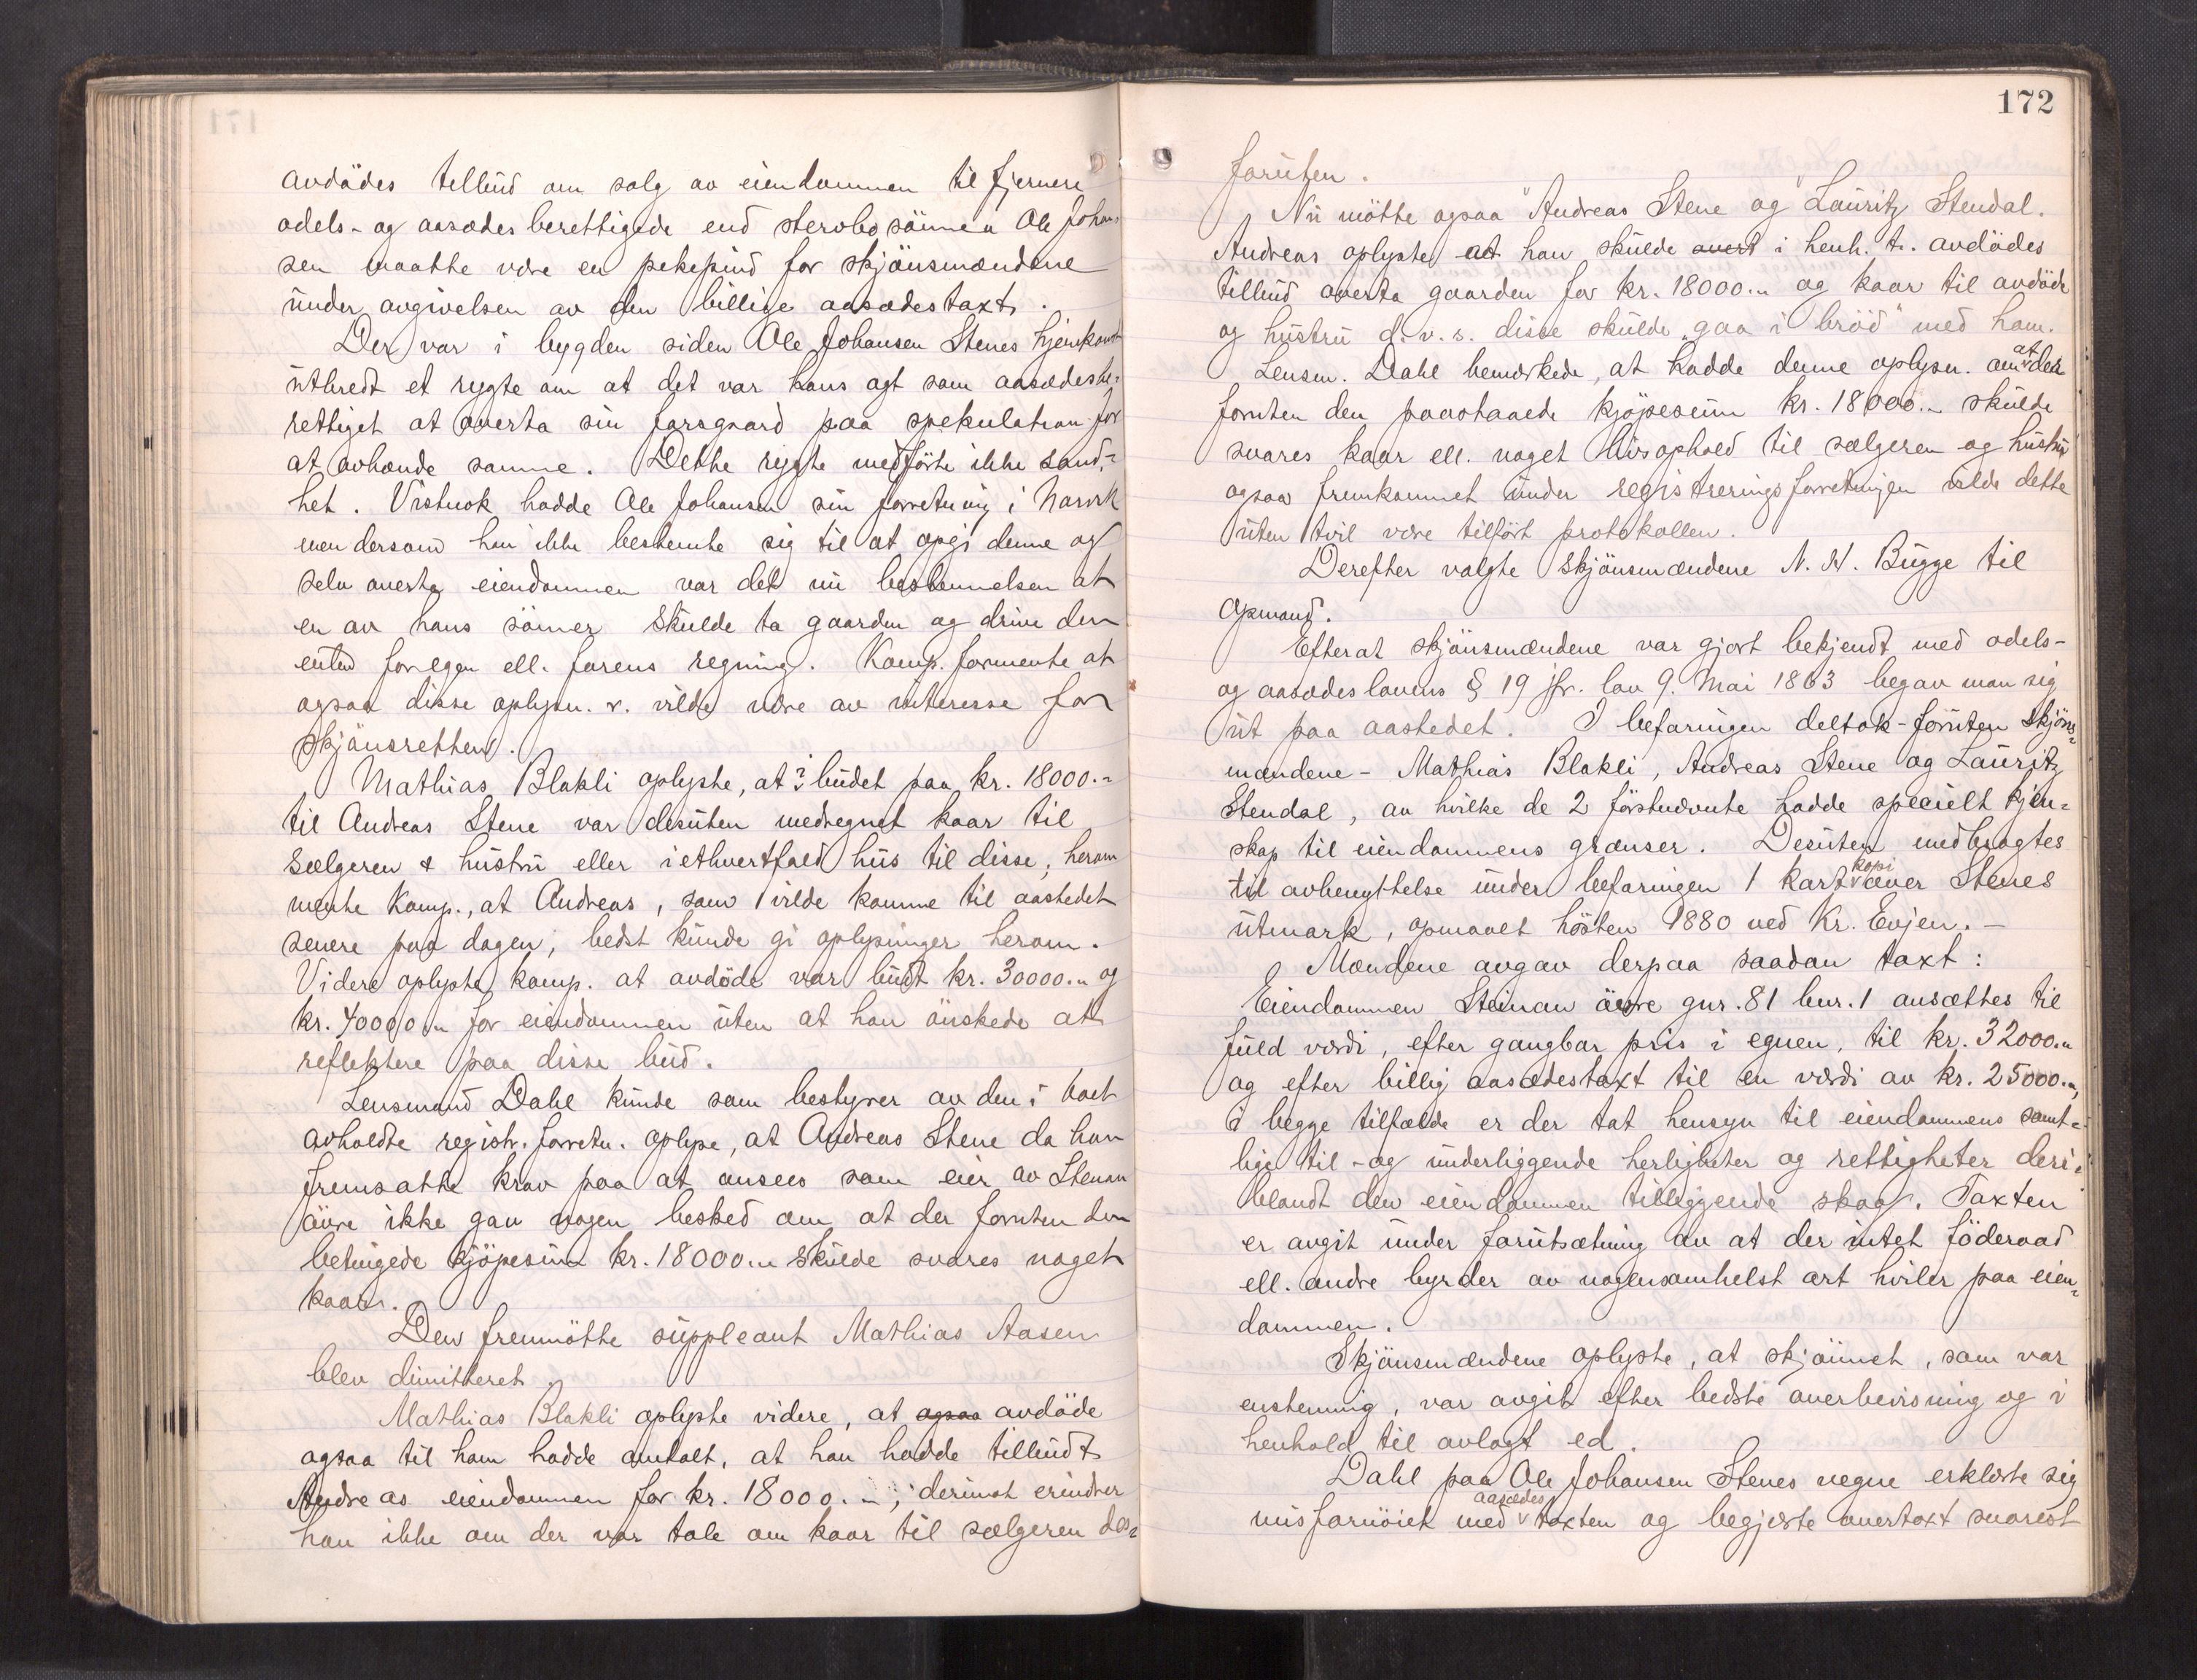 avdödes tilbud om salg av eiendommen til fjernere
odels- og aasædesberettigede end sterobosönnen Ole Johan-
sen maatte være en pekepind for skjönsmændene
under avgivelsen av den billige aasædestaxt.
Der var i bygden siden Ole Johansen Stenes hjemkomst
utbredt et rygte om at det var hans agt som aasædesbe-
rettiget at overta sin farsgaard paa spekulation for
at avhænde samme. Dette rygte medförte ikke sand-
het. Vistnok hadde Ole Johansen sin forretning i Narvik
men dersom han ikke bestemte sig til at opgi denne og
selv overta eiendommen var det nu bestemmelsen at
en av hans sönner skulde ta gaarden og drive den
enten for egen ell. farens regning. Komp. formente at
ogsaa disse oplysn. r. vilde være av interesse for
skjönsretten.
Mathias Blakli oplyste, at i budet paa kr. 18000.-
til Andreas Stene var desuten medregnet kaar til
sælgeren & hustru eller i ethvertfald hus til disse; herom
mente Komp., at Andreas, som vilde komme til aastedet
senere paa dagen, bedst kunde gi oplysninger herom.
Videre oplyste komp. at avdöde var budt kr. 30000.- og
kr. 40000.- for eiendommen uten at han önskede at
reflektere paa disse bud.
Lensmand Dahl kunde som bestyrer av den i boet
avholdte registr. forretn. oplyse, at Andreas Stene da han
fremsatte krav paa at ansees som eier av Stenan
övre ikke gav nogen besked om at der foruten den
betingede kjöpesum kr. 18000.- skulde svares noget
kaar.
Den fremmötte suppleant Mathias Aasen
blev dimitteret.
Mathias Blakli oplyste videre, at ogsaa avdöde
ogsaa til ham hadde omtalt, at han hadde tilbudt
Andreas eiendommen for kr. 18000.-; derimot erindrer
han ikke om der var tale om kaar til sælgeren des-
172
foruten.
Nu mötte ogsaa Andreas Stene og Lauritz Stendal.
Andreas oplyste at han skulde overt i henh. t. avdödes
tilbud overta gaarden for kr. 18000.- og kaar til avdöde
og hustru d.v.s. disse skulde "gaa i bröd" med ham.
Lensm. Dahl bemærkede, at hadde denne oplysn. om at der
foruten den paastaaede kjöpesum kr. 18000.- skulde
svares kaar ell. noget livsophold til sælgeren og hustru
ogsaa fremkommet under registreringsforretningen vilde dette
uten tvil være tilfört protokollen.
Derefter valgte skjönsmændene N. H. Bugge til
opmand.
Efterat skjönsmændene var gjort bekjendt med odels-
og aasædeslovens § 19 jfr. lov 9. Mai 1863 begav man sig
ut paa aastedet. I befaringen deltok - foruten skjöns-
mændene - Mathias Blakli, Andreas Stene og Lauritz
Stendal, av hvilke de 2 förstnævnte hadde specielt kjen-
skap til eiendommens grænser. Desuten medbragtes
til avbenyttelse under befaringen 1 kart kopi over Stenes
utmark, opmaalt hösten 1880 ved Kr. Evjen. -
Mændene avgav derpaa saadan taxt:
Eiendommen Steinan övre gnr. 81 bnr. 1 ansættes til
fuld værdi, efter gangbar pris i egnen, til kr. 32000.-
og efter billig aasædestaxt til en værdi av kr. 25000.-,
i begge tilfælde er der tat hensyn til eiendommens samt-
lige til- og underliggende herligheter og rettigheter deri-
blandt den eiendommen tilliggende skog. Taxten
er avgit under forutsætning av at der intet föderaad
ell. andre byrder av nogensomhelst art hviler paa eien-
dommen.
Skjönsmændene oplyste, at skjönnet, som var
enstemmig, var avgit efter bedste overbevisning og i
henhold til avlagt ed.
Dahl paa Ole Johansen Stenes vegne erklærte sig
misfornöiet med aasædes taxten og begjærte overtaxt snarest